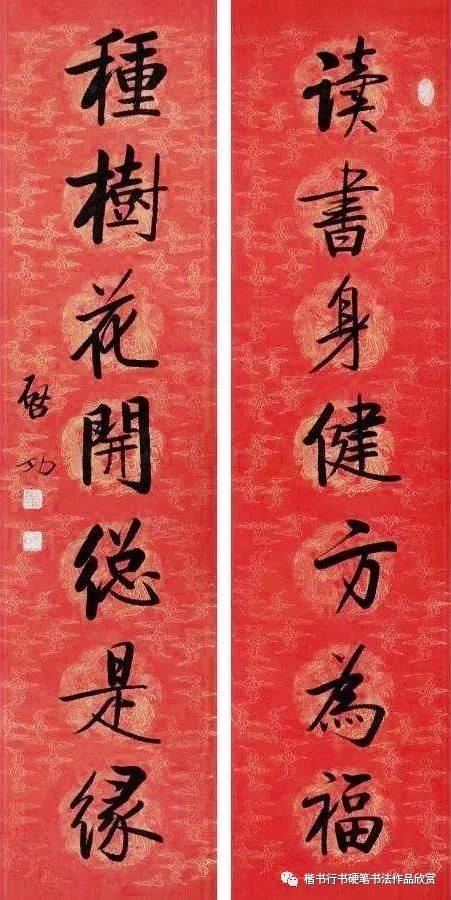 读書身健方為福
種樹花開總是緣
啓功
楷书行书硬笔书法作品欣赏